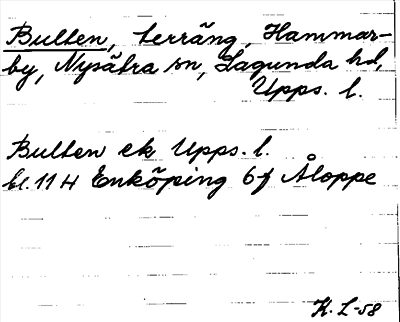 Bulten, terräng, Hammar-
by, Nysätra sn, Lagunda hd,
Upps. l.
Bulten ek Upps. l.
bl. 11 H Enköping 6 f Åloppe
K. L-58